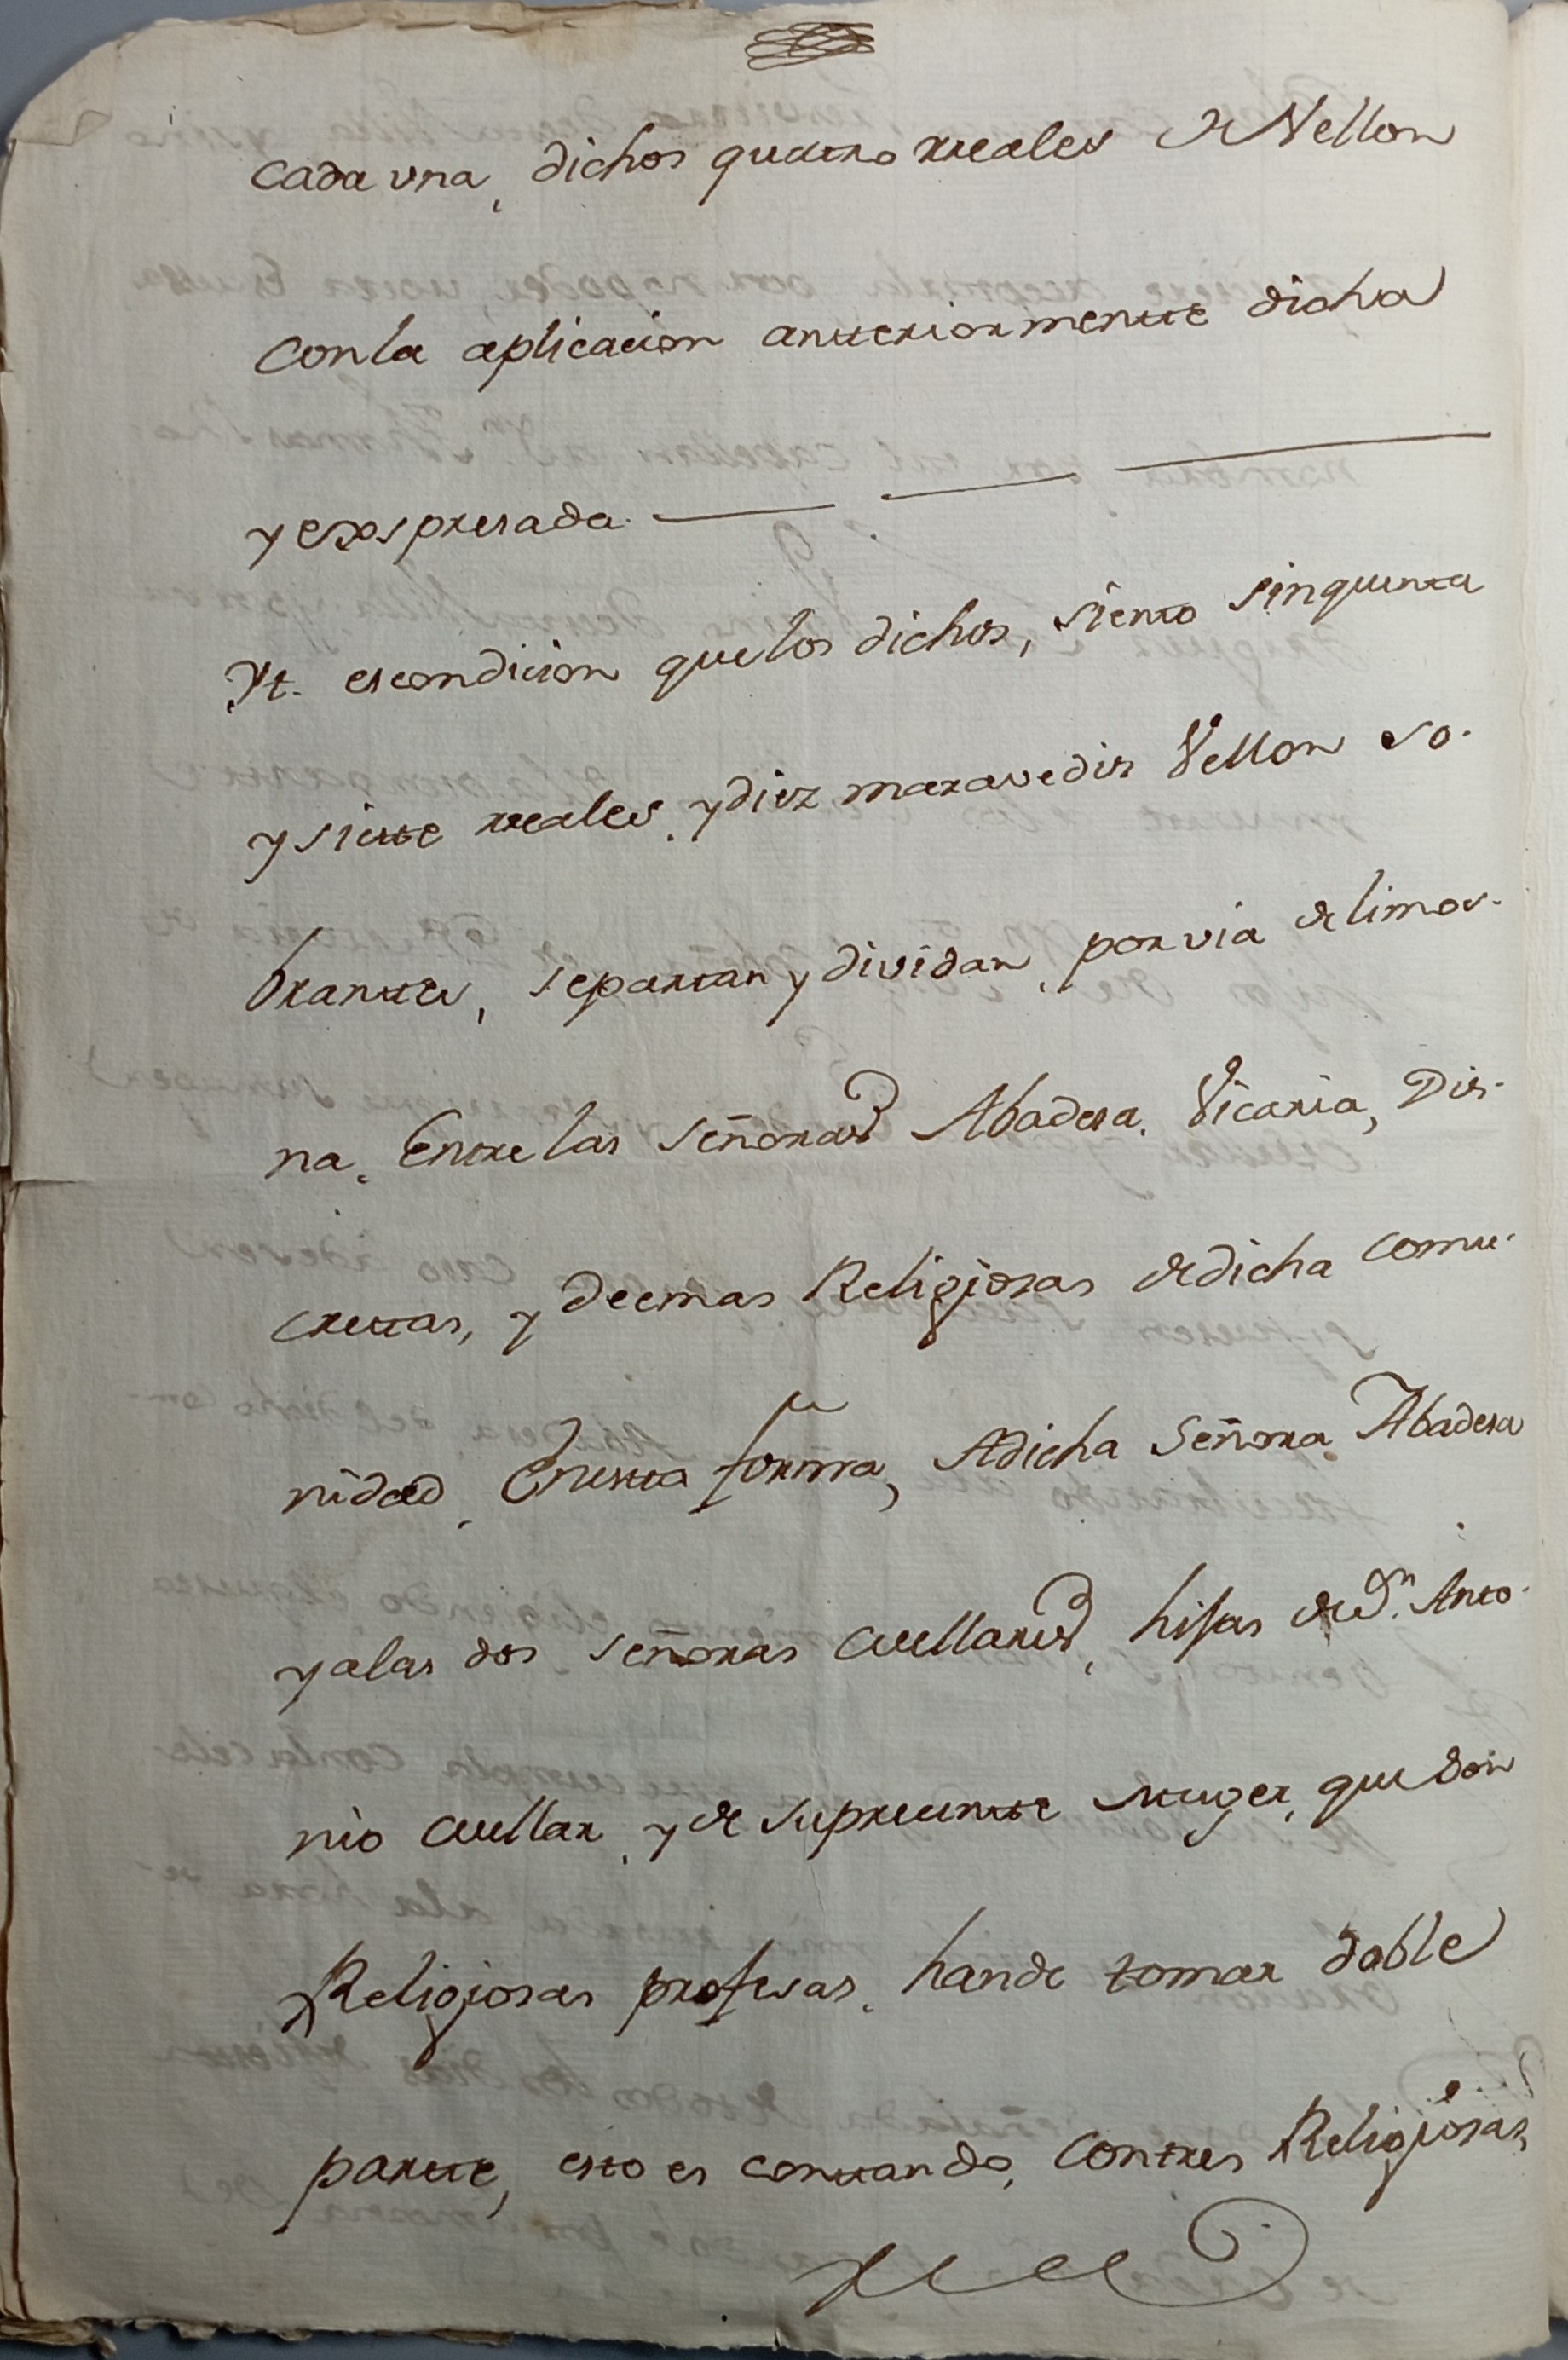 cada una, dichos quatro rreales de Vellon
conla aplicacion anteriormente dicha
y exspresada.
Yt. escondicion quelos dichos, siento sinquenta
y siette rreales, y diez maravedis Vellon so-
brantes, separtan y dividan, por via de limos-
na, Entre las Señoras Abadesa, Vicaria, Dis-
cretas, y deemas Religiosas de dicha comu-
nidad, Enesta forma, Adicha Señora Abadesa
y alas dos Señoras Cuellares, hijas de Dn. Anto-
nio Cuellar, y de supresente muger, que son
Religiosas profesas, hande tomar doble
partte, esto es contando, contres Religiosas,